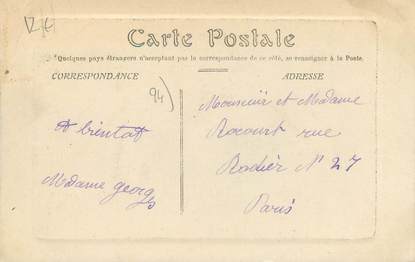 Carte Postale
Quelques pays étrangers n'acceptant pas la correspondance de ce côté, se renseigner à la Poste.
CORRESPONDANCE
ADRESSE
94)
A bientot
Madame georg
Monsieur et Madame
Rocourt rue
Rodier N° 27
Paris